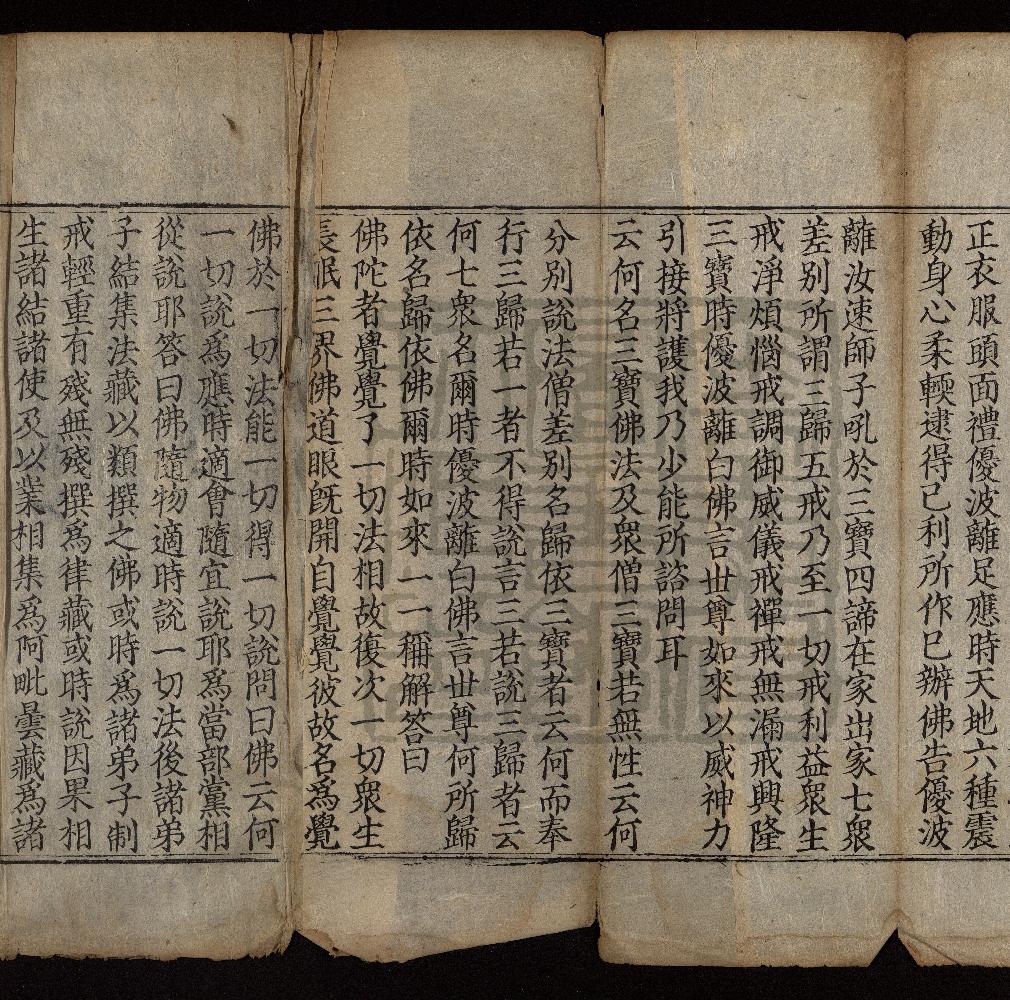 正衣服頭面禮優波離足應時天地六種震
動身心柔軟逮得已利所作已辦佛告優波
離汝速師子吼於三寶四諦在家出家七衆
差别所謂三歸五戒乃至一切戒利益衆生
戒淨煩惱戒調御威儀戒禪戒無漏戒興隆
三寶時優波離白佛言世尊如來以威神力
引接將護我乃少能所諮問耳
云何名三寶佛法及衆僧三寶若無性云何
分别說法僧差别名歸依三寶者云何而奉
行三歸若一者不得說言三若說三歸者云
何七衆名爾時優波離白佛言世尊何所歸
依名歸依佛爾時如來一一稱解答曰
佛陀者覺覺了一切法相故復次一切衆生
長眠三界佛道眼旣開自覺覺彼故名爲覺
佛於一切法能一切得一切說問曰佛云何
一切說爲應時適會隨宜說耶爲當部黨相
從說耶答曰佛隨物適時說一切法後諸弟
子結集法藏以類撰之佛或時爲諸弟子制
戒輕重有殘無殘撰爲律藏或時說因果相
生諸結諸使及以業相集爲阿毗曇藏爲諸